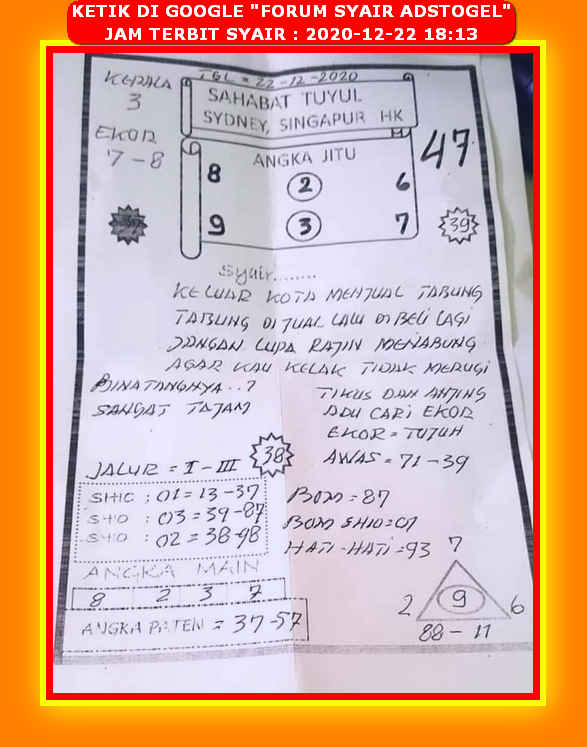 KETIK DI GOOGLE "FORUM SYAIR ADSTOGEL"
JAM TERBIT SYAIR : 2020-12-22 18:13
TGL = 22-12-2020
KEPALA
3
EKOR
7-8
SAHABAT TUYUL
SYDNEY, SINGAPUR HK
ANGKA JITU
8 2 6
9 3 7
47
39
Syair........
KELUAR KOTA MENJUAL TABUNG
TABUNG DI JUAL LALU DI BELI LAGI
JANGAN LUPA RAJIN MENABUNG
AGAR KAU KELAK TIDAK MERUGI
BINATANGNYA..?
SANGAT TAJAM
TIKUS DAN ANJING
ADU CARI EKOR
EKOR = TUJUH
AWAS = 71-39
JALUR = I - III
38
SHIO : 01 = 13-37
SHIO : 03 = 39-87
SHIO : 02 = 38-98
BOM = 87
BOM SHIO = 07
HATI-HATI = 93
ANGKA MAIN
8 2 3 7
ANGKA PATEN = 37-57
7
2 9 6
88 - 11